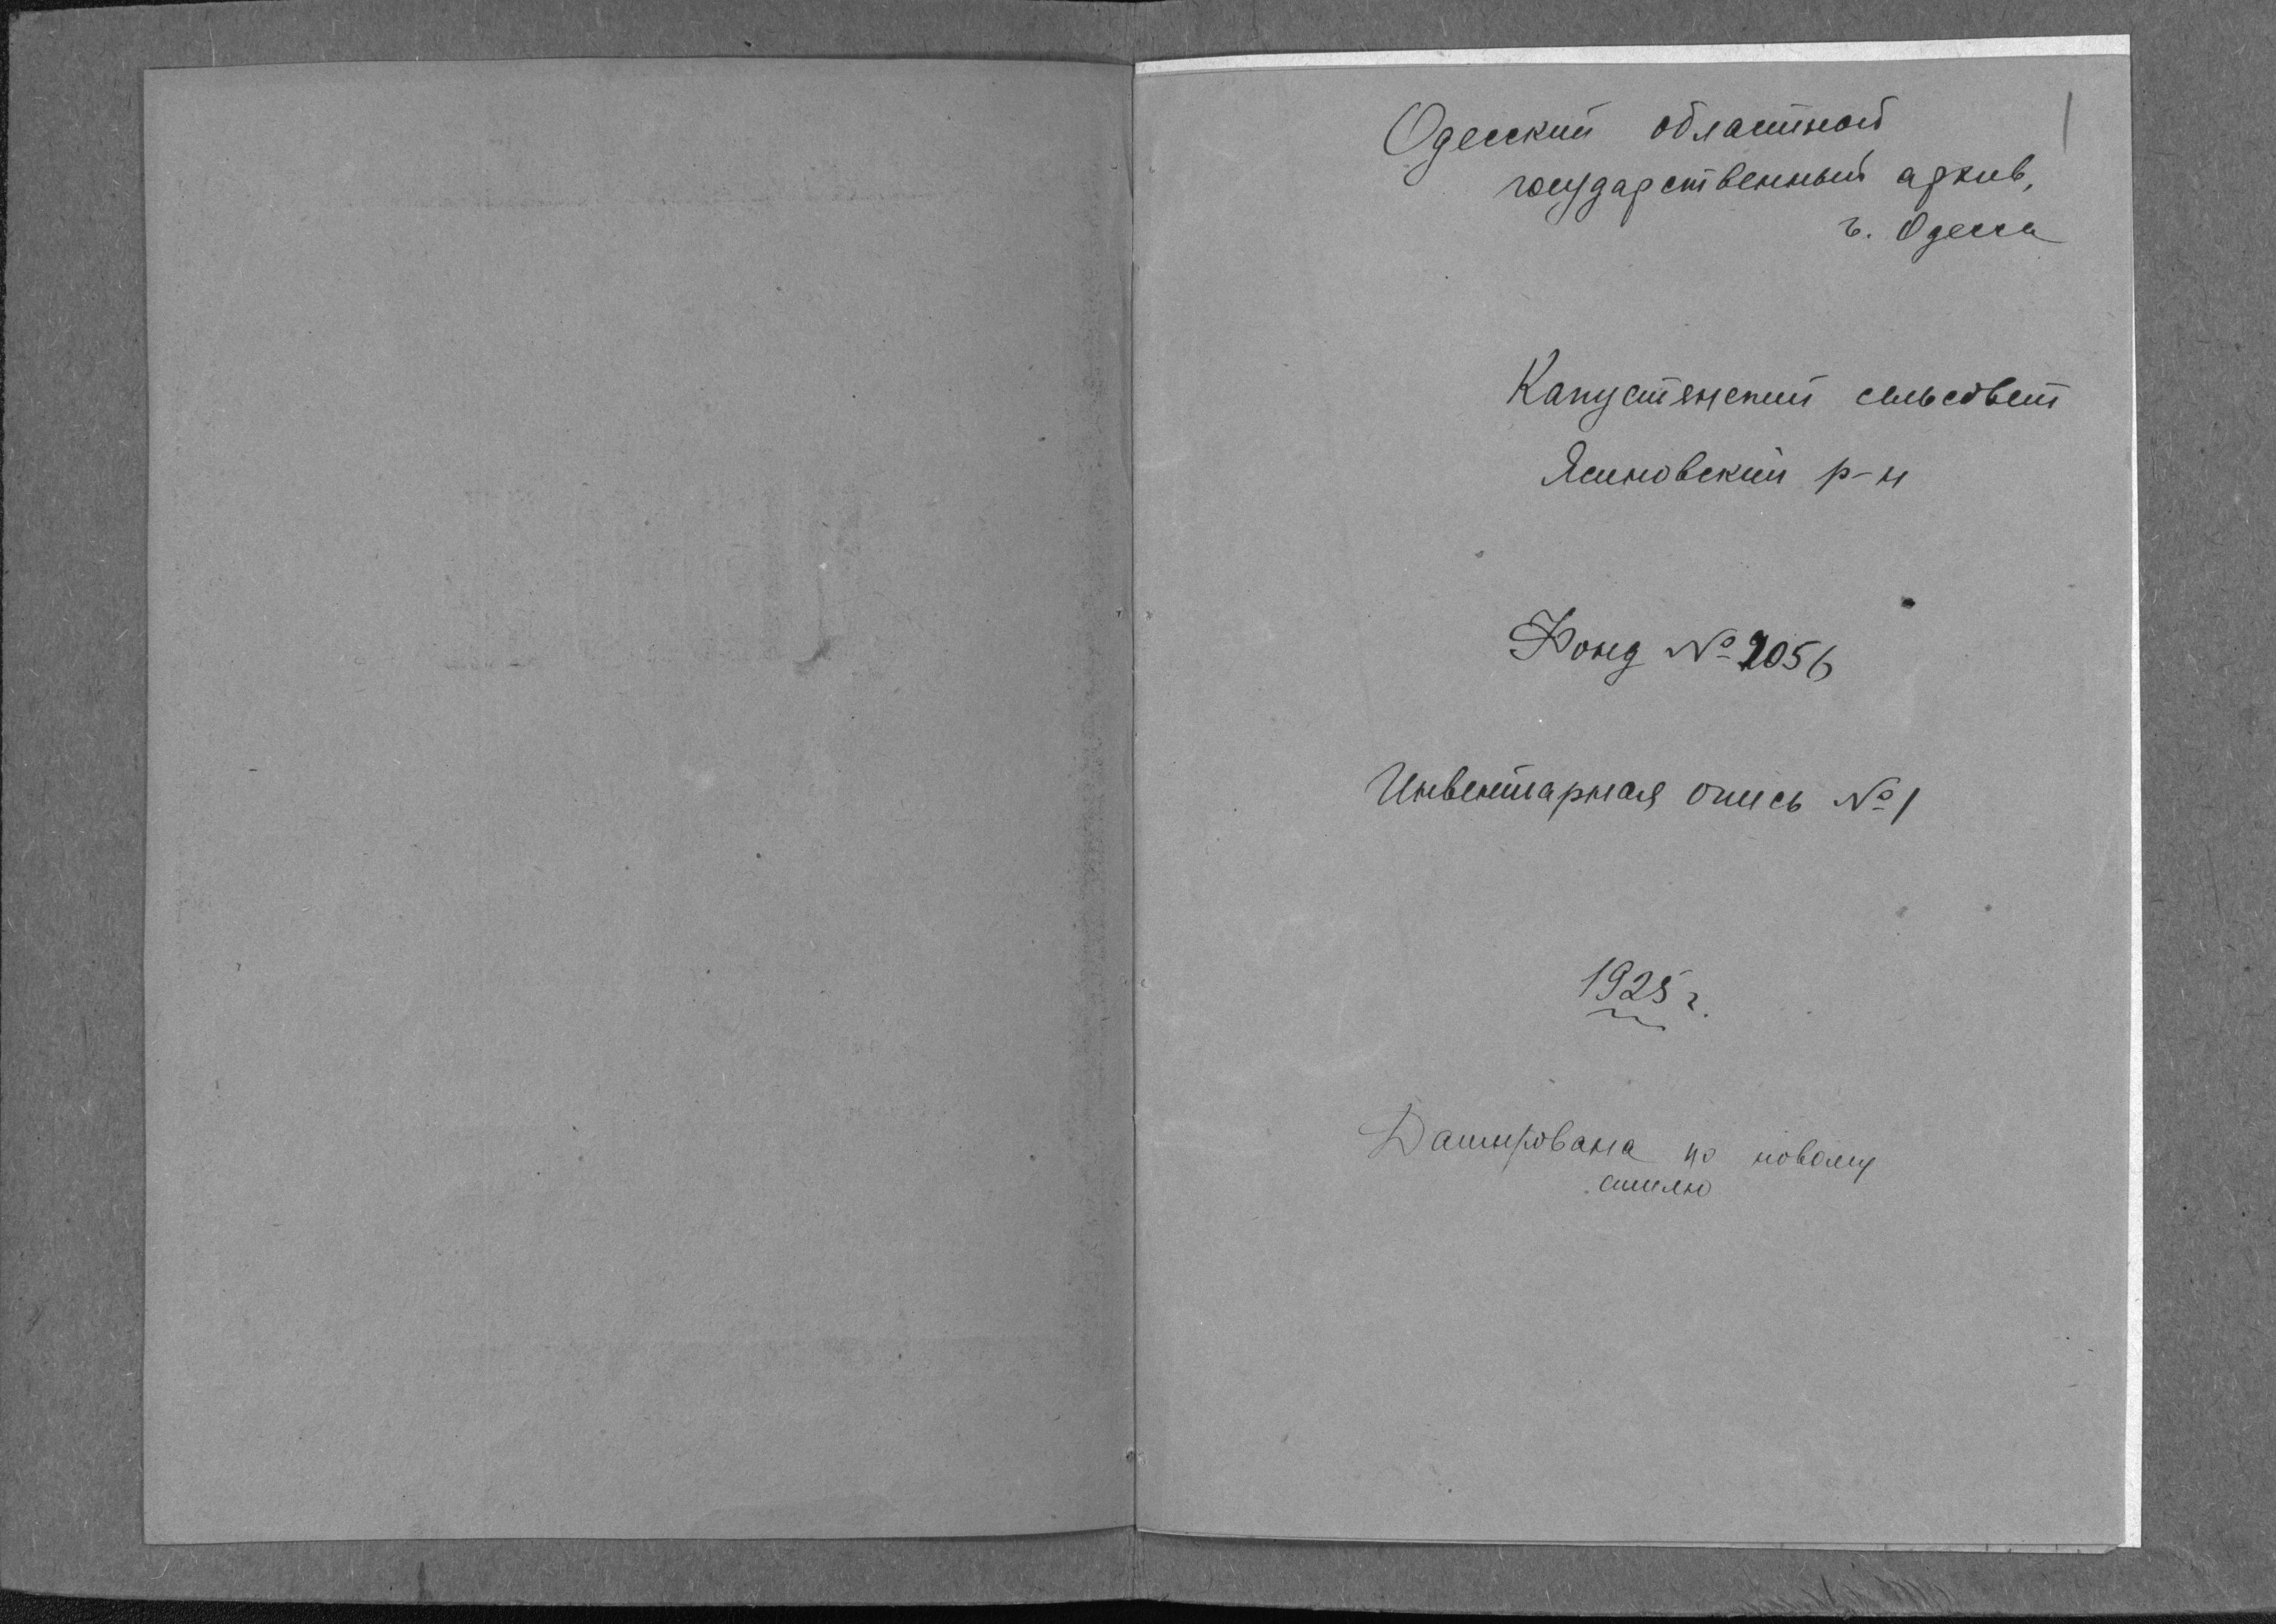 1
Одесский областной
государственный архив,
г. Одесса
Капустянский сельсовет
Ясиновский р-н
Фонд № 2056
Инвентарная опись № 1
1925 г.
Датирована по новому
стилю